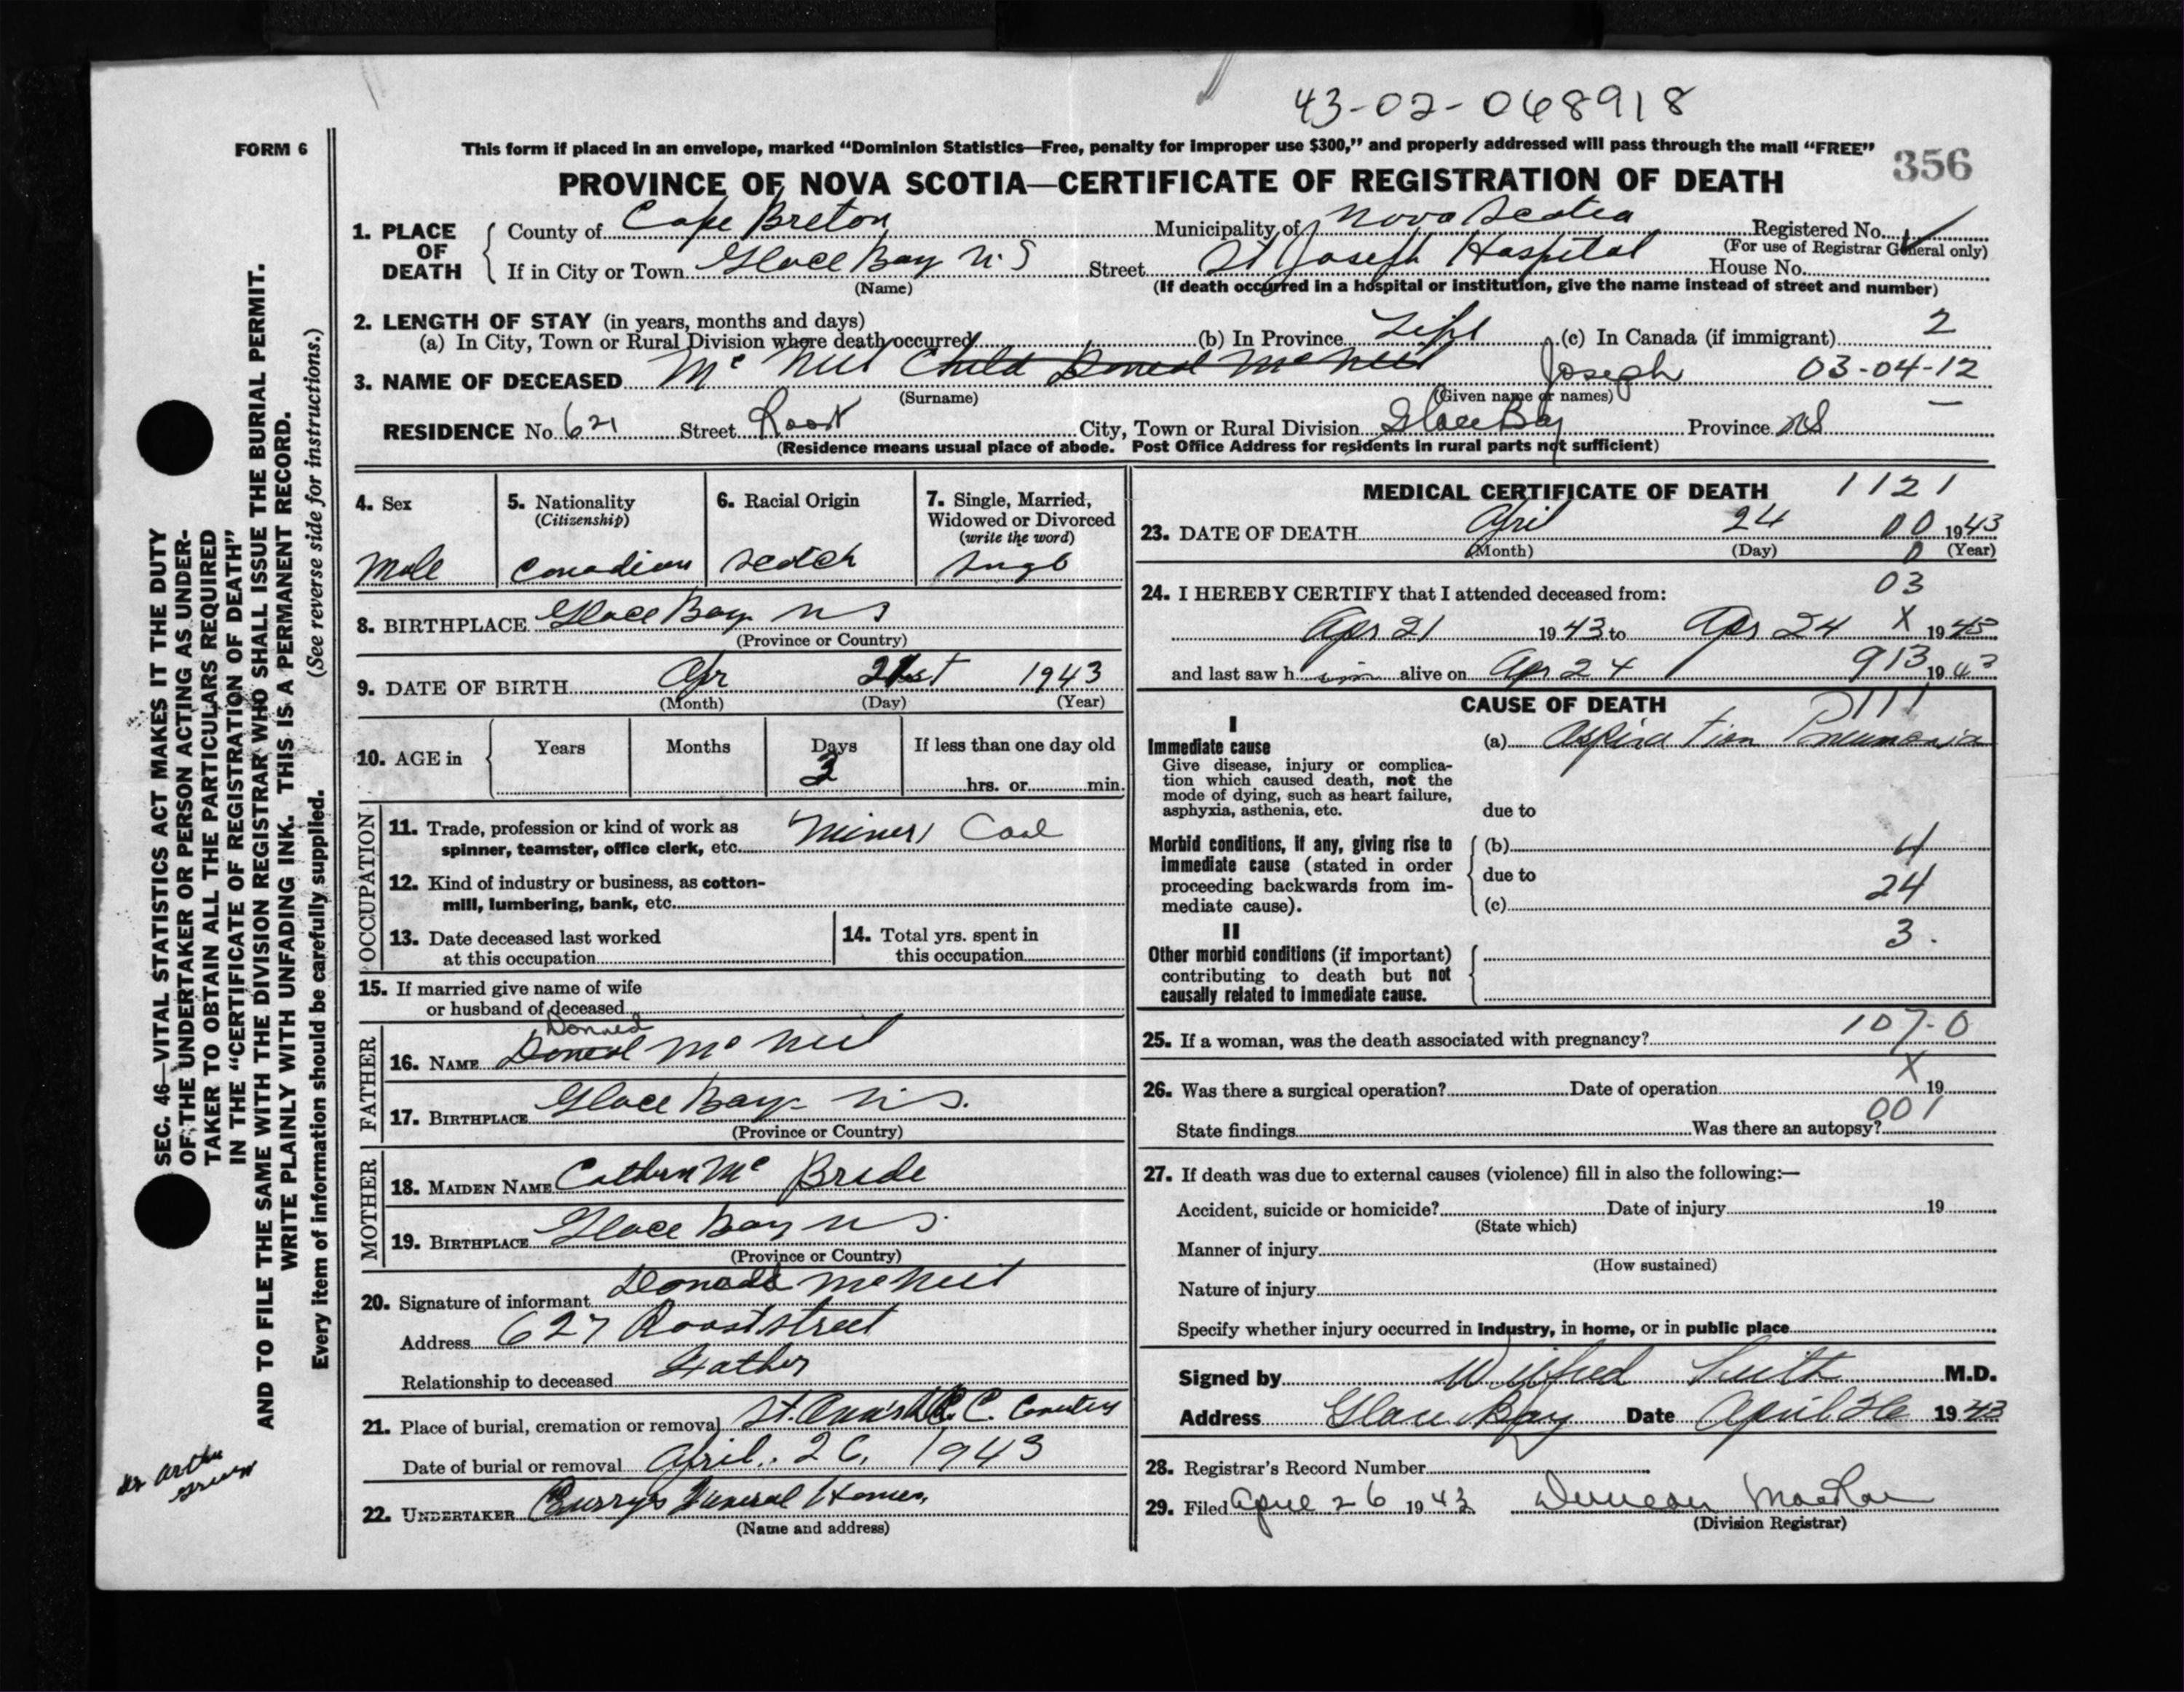 43-02-068918
FORM 6
This form if placed in an envelope, marked “Dominion Statistics—Free, penalty for improper use $300,” and properly addressed will pass through the mail “FREE”
356
PROVINCE OF NOVA SCOTIA—CERTIFICATE OF REGISTRATION OF DEATH
1. PLACE OF DEATH
County of Cape Breton Municipality of Nova Scotia Registered No.
(For use of Registrar General only)
If in City or Town Glace Bay N.S Street St Joseph Hospital House No.
(Name) (If death occurred in a hospital or institution, give the name instead of street and number)
2. LENGTH OF STAY (in years, months and days)
(a) In City, Town or Rural Division where death occurred (b) In Province Life (c) In Canada (if immigrant) 2
3. NAME OF DECEASED Mc Neil Child Donald McNeil Joseph 03-04-12
(Surname) (Given name or names)
RESIDENCE No. 621 Street Roost City, Town or Rural Division Glace Bay Province NS
(Residence means usual place of abode. Post Office Address for residents in rural parts not sufficient)
4. Sex
Male
5. Nationality
(Citizenship)
Canadian
6. Racial Origin
Scotch
7. Single, Married,
Widowed or Divorced
(write the word)
Single
8. BIRTHPLACE Glace Bay N S
(Province or Country)
9. DATE OF BIRTH Apr 21st 1943
(Month) (Day) (Year)
10. AGE in
Years Months Days If less than one day old
3 hrs. or min.
OCCUPATION
11. Trade, profession or kind of work as
spinner, teamster, office clerk, etc. Miner Coal
12. Kind of industry or business, as cotton-
mill, lumbering, bank, etc.
13. Date deceased last worked
at this occupation
14. Total yrs. spent in
this occupation
15. If married give name of wife
or husband of deceased
FATHER
Donald
16. NAME Mc Neil
17. BIRTHPLACE Glace Bay N.S.
(Province or Country)
MOTHER
18. MAIDEN NAME Mc Bride
19. BIRTHPLACE Glace Bay N S.
(Province or Country)
20. Signature of informant Donald McNeil
Address 627 Roost street
Relationship to deceased Father
21. Place of burial, cremation or removal St. Ann's R. C. Cemetery
Date of burial or removal April 26, 1943
22. UNDERTAKER Curry's Funeral Home,
(Name and address)
MEDICAL CERTIFICATE OF DEATH 1121
23. DATE OF DEATH April 24 00 1943
(Month) (Day) 0 (Year)
24. I HEREBY CERTIFY that I attended deceased from: 03
Apr 21 1943 to Apr 24 X 1943
and last saw him alive on Apr 24 913 1943
CAUSE OF DEATH 111
I
Immediate cause
Give disease, injury or complica-
tion which caused death, not the
mode of dying, such as heart failure,
asphyxia, asthenia, etc.
(a) Aspiration Pneumonia
due to
Morbid conditions, if any, giving rise to
immediate cause (stated in order
proceeding backwards from im-
mediate cause).
(b) 4
due to
(c) 24
II
Other morbid conditions (if important)
contributing to death but not
causally related to immediate cause.
3.
25. If a woman, was the death associated with pregnancy? 107-0
26. Was there a surgical operation? Date of operation X 19
State findings Was there an autopsy? 001
27. If death was due to external causes (violence) fill in also the following:—
Accident, suicide or homicide? Date of injury 19
(State which)
Manner of injury
(How sustained)
Nature of injury
Specify whether injury occurred in industry, in home, or in public place
Signed by Wilfred M.D.
Address Glace Bay Date April 26 1943
28. Registrar's Record Number
29. Filed April 26 1943 Duncan MacRae
(Division Registrar)
SEC. 46—VITAL STATISTICS ACT MAKES IT THE DUTY
OF THE UNDERTAKER OR PERSON ACTING AS UNDER-
TAKER TO OBTAIN ALL THE PARTICULARS REQUIRED
IN THE “CERTIFICATE OF REGISTRATION OF DEATH”
AND TO FILE THE SAME WITH THE DIVISION REGISTRAR WHO SHALL ISSUE THE BURIAL PERMIT.
WRITE PLAINLY WITH UNFADING INK. THIS IS A PERMANENT RECORD.
(See reverse side for instructions.)
Every item of information should be carefully supplied.